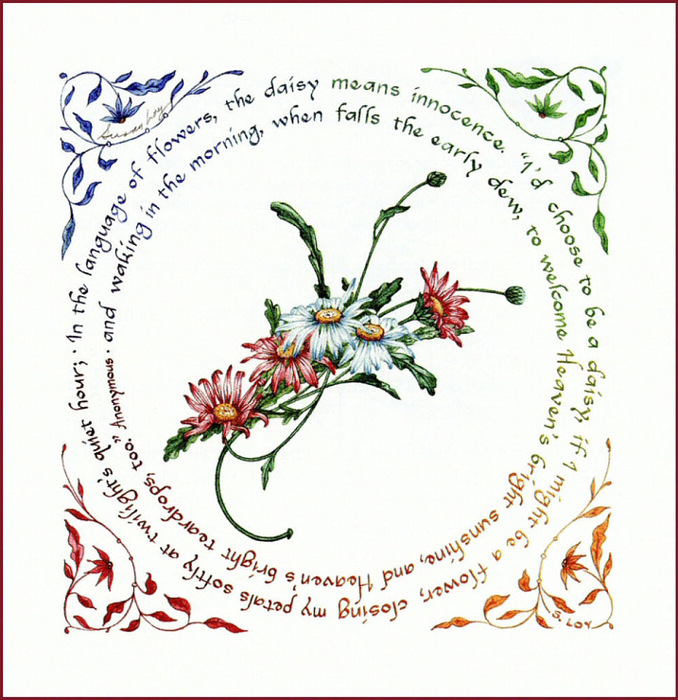 · In the language of flowers, the daisy means innocence. "I'd choose to be a daisy, if I might be a flower, closing my petals softly at twilight's quiet hour;
· and waking in the morning, when falls the early dew, to welcome Heaven's bright sunshine, and Heaven's bright teardrops, too." Anonymous
Susan Loy
S. LOY